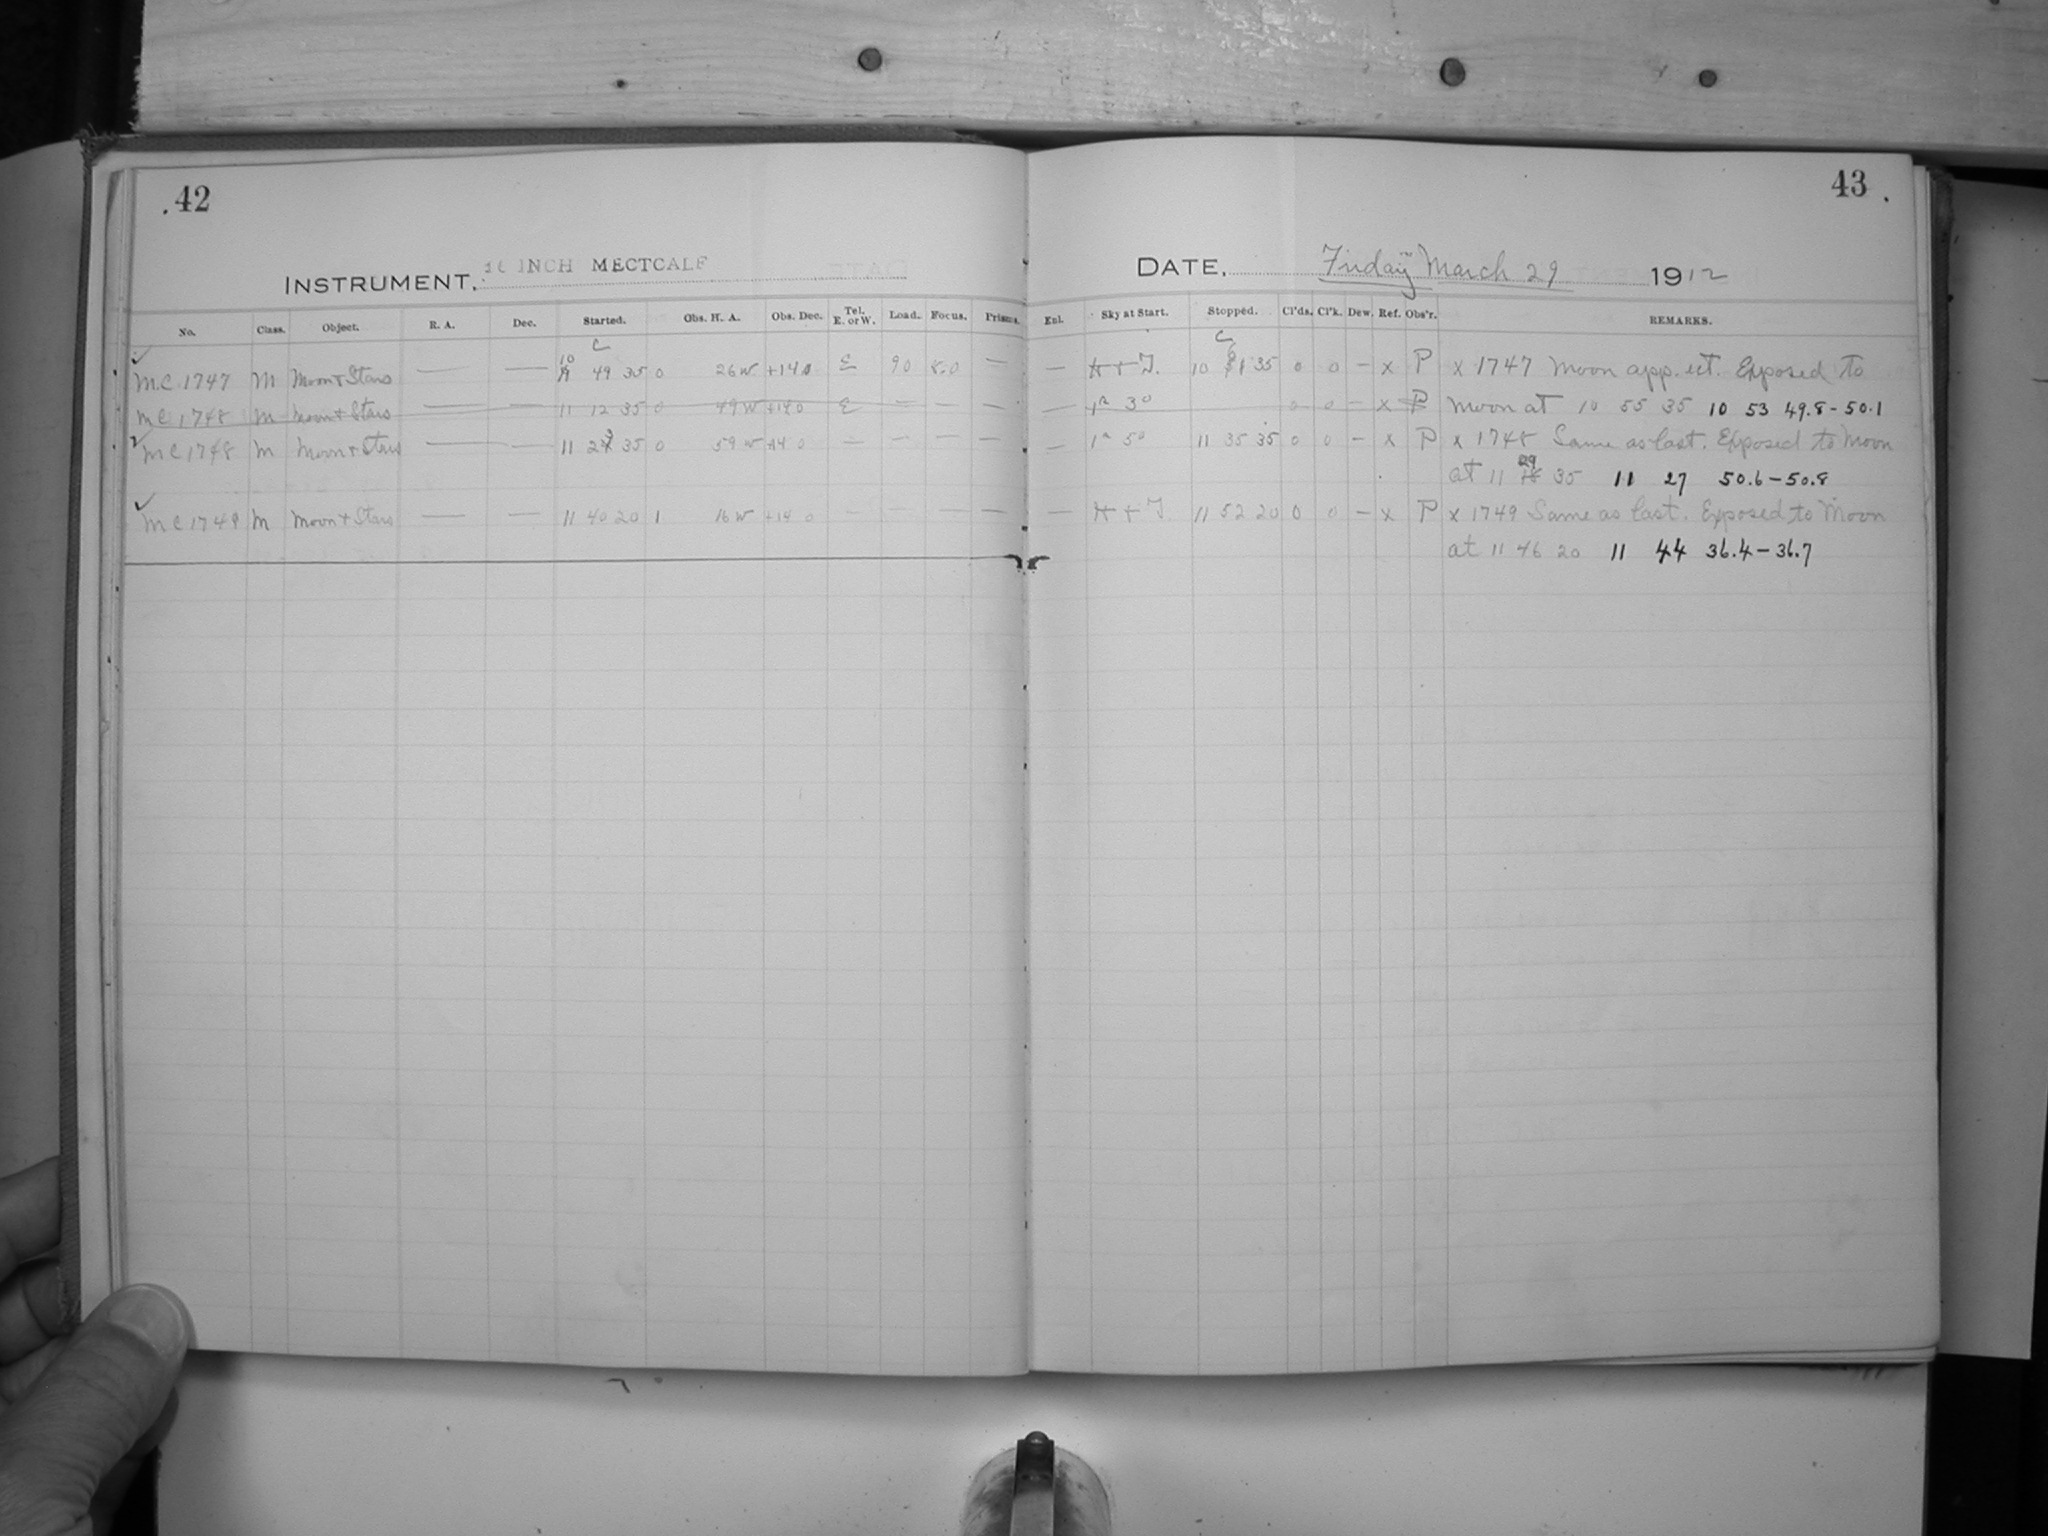 42
INSTRUMENT. 16 INCH MECTCALF
No. Class. Object. R. A. Dec. Started. Obs. H. A. Obs. Dec. Tel. E. or W. Load. Focus. Prisms.
C
MC 1747 M Moon + Stars — — 10 49 35 0 26 W +14 0 E 90 8.0 —
MC 1748 M Moon + Stars — — 11 12 35 0 49 W +14 0 E — — —
MC 1748 M Moon + Stars — — 11 23 35 0 59 W +14 0 — — — —
MC 1749 M Moon + Stars — — 11 40 20 1 16 W +14 0 — — — —
43
DATE, Friday March 29 1912
Enl. Sky at Start. Stopped. Cl'ds. Cl'k. Dew. Ref. Obs'r. REMARKS.
C
— 10 61 35 0 0 — x P x 1747 Moon app. ect. Exposed to
— 1h 30 0 0 — x P Moon at 10 55 35 10 53 49.8-50.1
— 1h 50 11 35 35 0 0 — x P x 1748 Same as last. Exposed to Moon
at 11 29 35 11 27 50.6-50.8
— H + J. 11 52 20 0 0 — x P x 1749 Same as last. Exposed to Moon
at 11 46 20 11 44 36.4-36.7